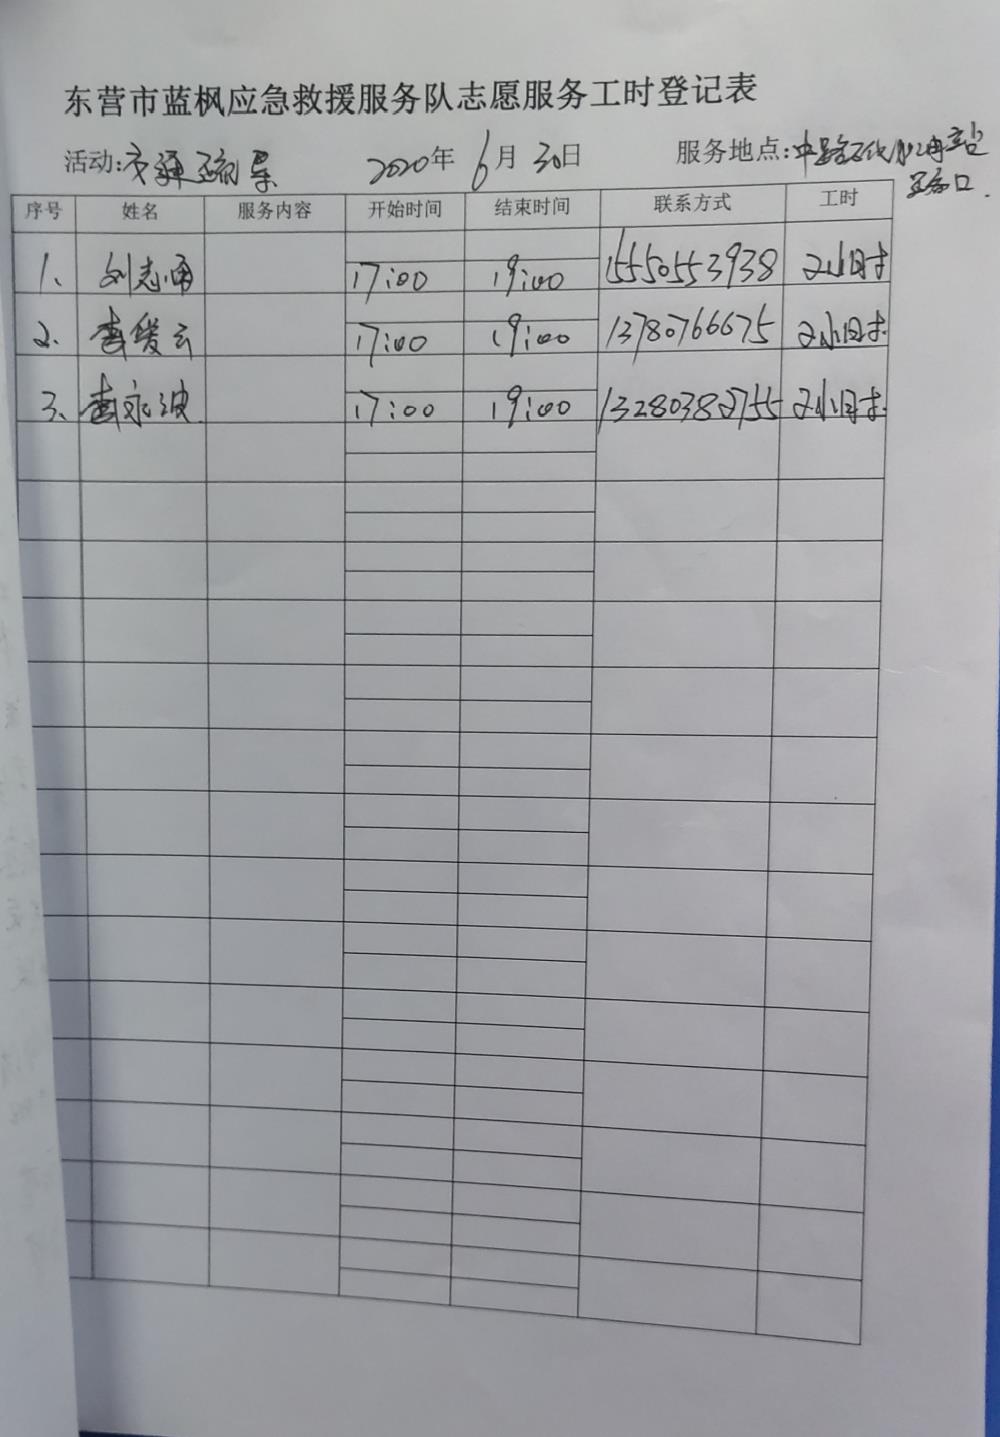 东营市蓝枫应急救援服务队志愿服务工时登记表
活动:交通疏导 2020年 6月 30日 服务地点:中
路口.
序号 姓名 服务内容 开始时间 结束时间 联系方式 工时
1、 刘志通 17:00 19:00 15550553938 2小时
2、 李爱云 17:00 19:00 13780766675 2小时
3、 李永波 17:00 19:00 13280382755 2小时